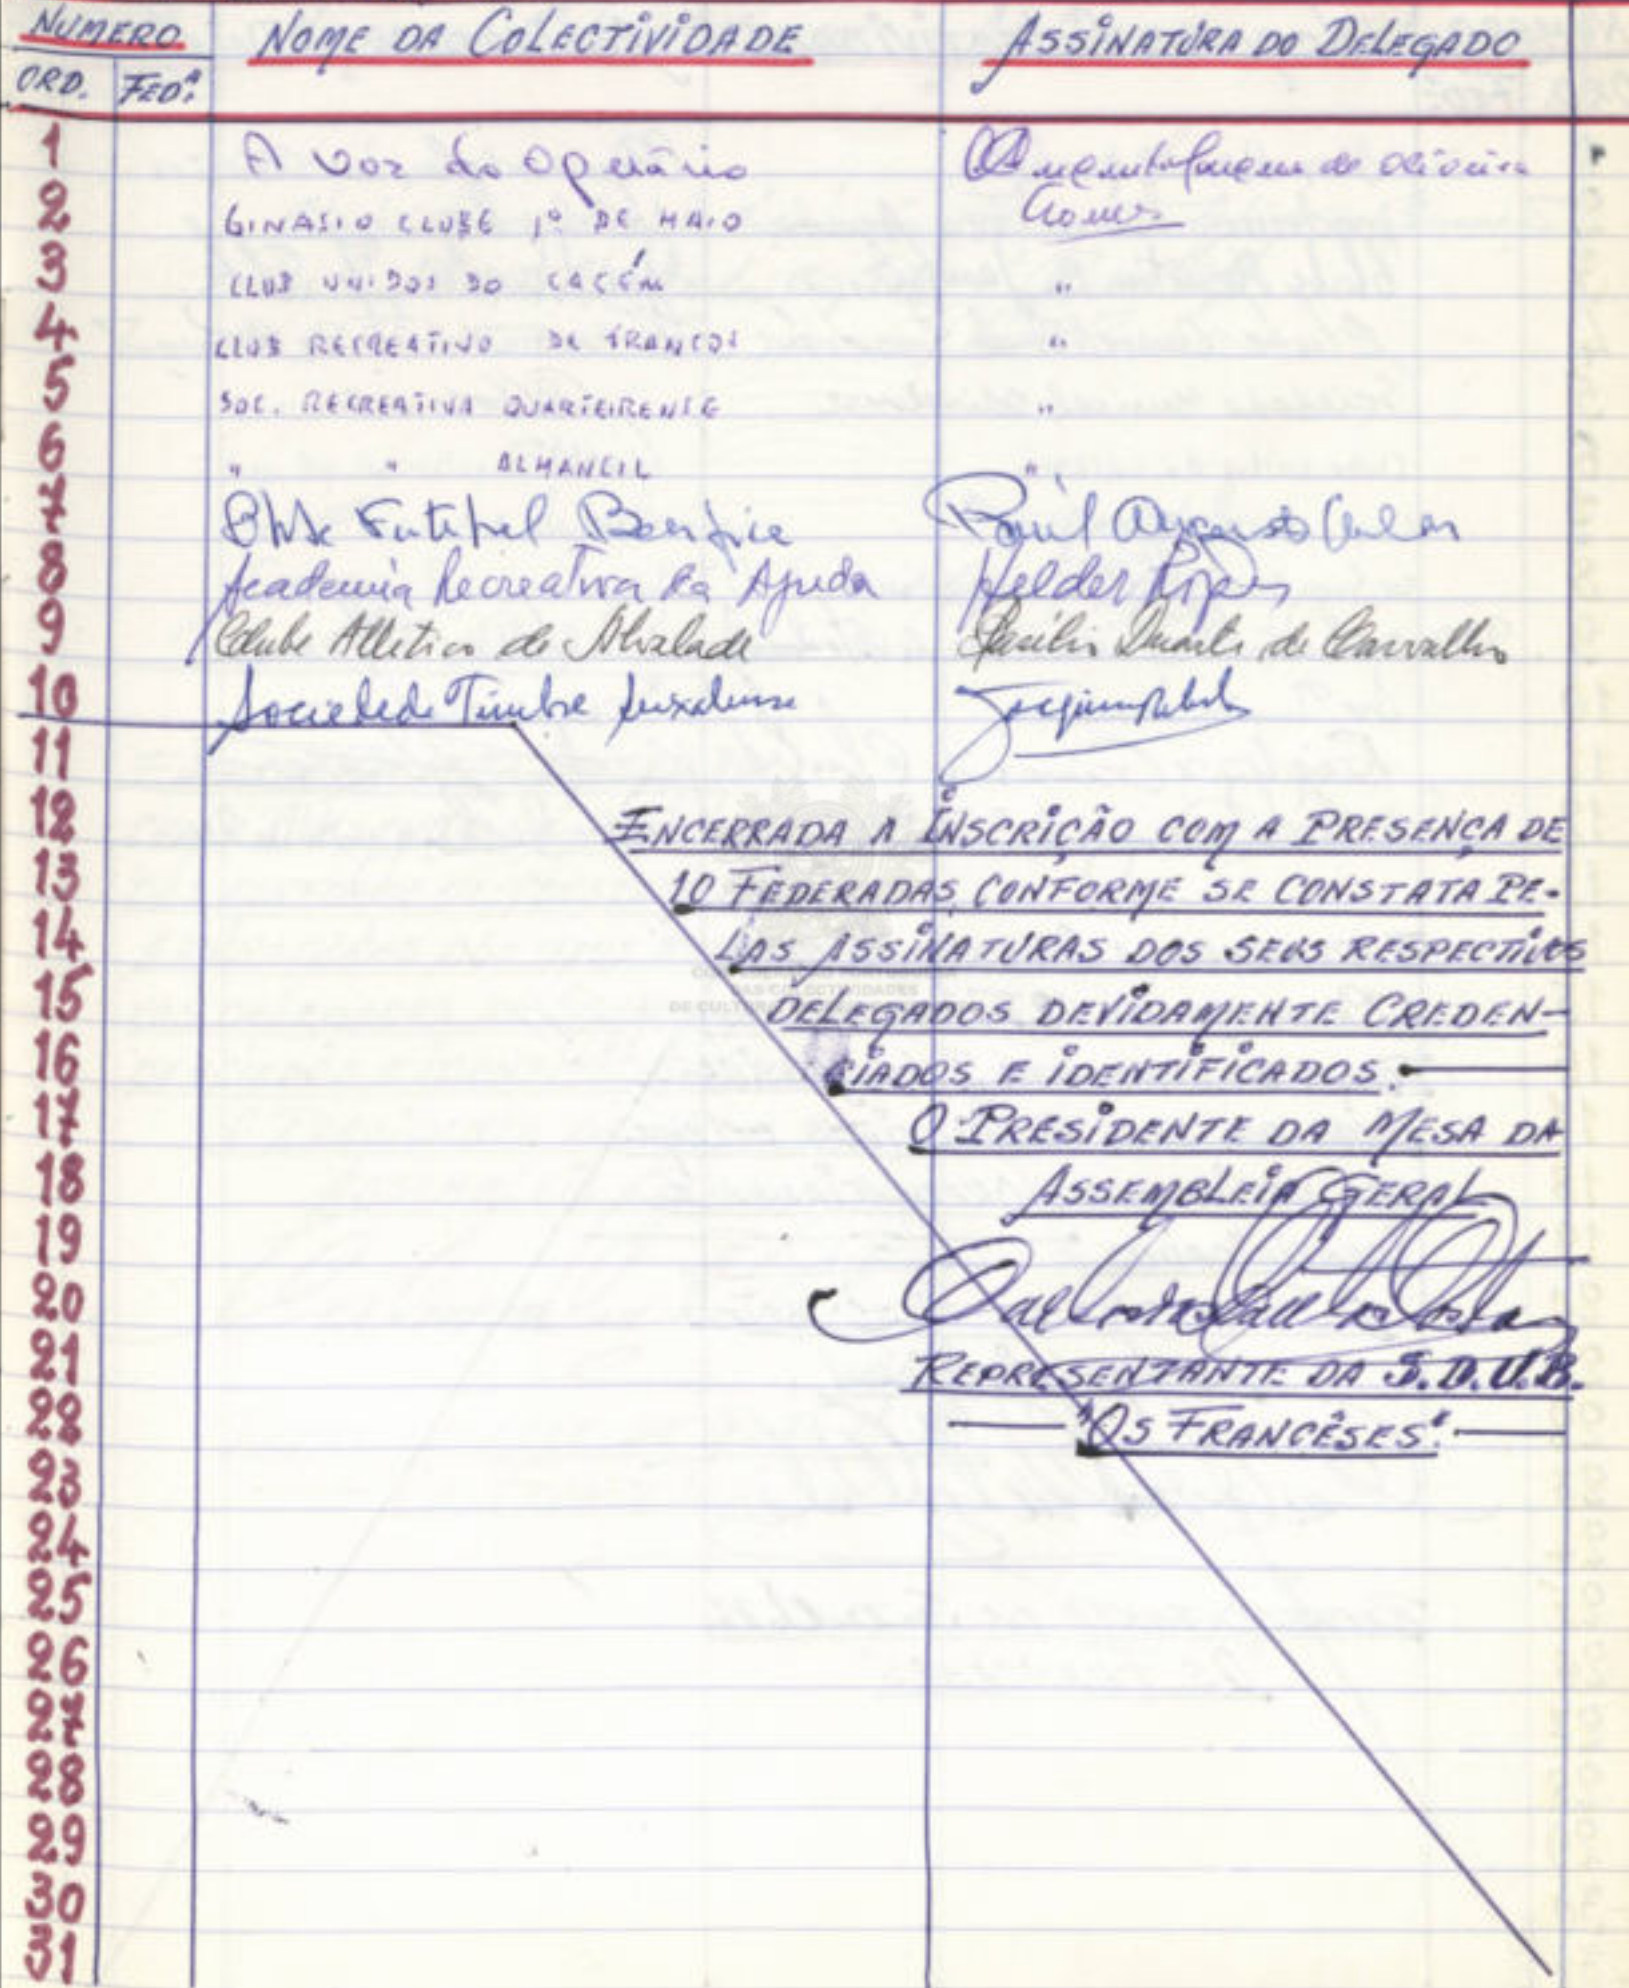 NUMERO NOME DA COLECTIVIDADE ASSINATURA DO DELEGADO
ORD. FEDª.
1 A Voz do Operário de Oliveira
2 GINASIO CLUBE 1º DE MAIO Gomes
3 CLUB UNIDOS DO CACÉM "
4 CLUB RECREATIVO DE TRANCOS "
5 SOC. RECREATIVA QUARTEIRENSE "
6 " " ALMANCIL "
7 Clube Futebol Benfica Raúl Augusto
8 Academia Recreativa da Ajuda Helder Lopes
9 Clube Atletico de Alvalade Basílio Duarte de Carvalho
10 Sociedade Timbre Seixalense
11
12 ENCERRADA A INSCRIÇÃO COM A PRESENÇA DE
13 10 FEDERADAS CONFORME SE CONSTATA PE-
14 LAS ASSINATURAS DOS SEUS RESPECTIVOS
15 DELEGADOS DEVIDAMENTE CREDEN-
16 CIADOS E IDENTIFICADOS.
17 O PRESIDENTE DA MESA DA
18 ASSEMBLEIA GERAL
19
20
21 REPRESENTANTE DA S.D.U.B.
22 "OS FRANCÊSES".
23
24
25
26
27
28
29
30
31